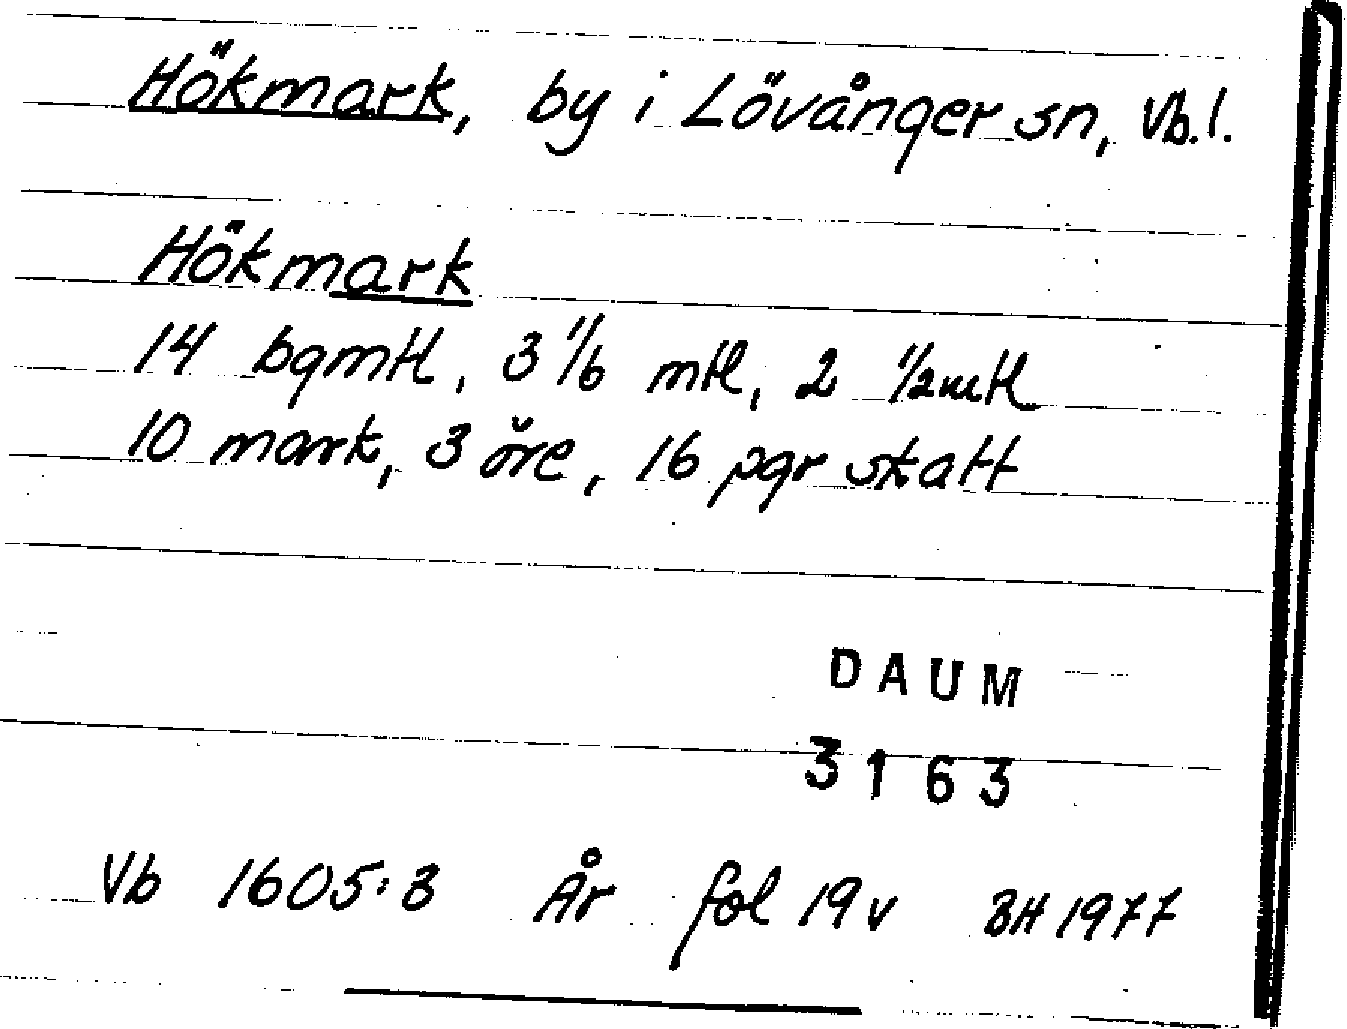 Hökmark, by i Lövånger sn, Vb.l.
Hökmark
14 bgmtl, 3 1/6 mtl, 2 1/2 mtl
10 mark, 3 öre, 16 pgr skatt
DAUM
3163
Vb 1605:3 År fol 19 v BH 1977